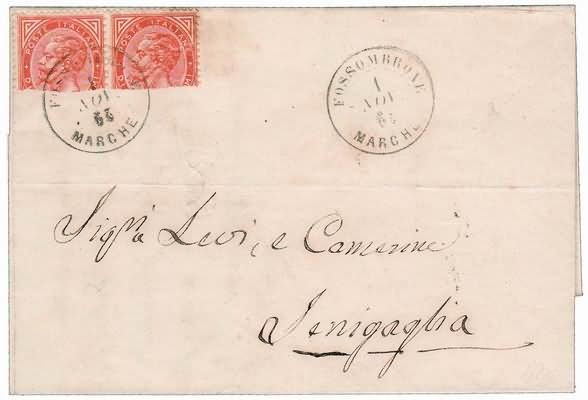 POSTE ITALIANE POSTE ITALIANE
1
NOV
MARCHE
FOSSOMBRONE
1
NOV
MARCHE
Sigri Levi, e Camerine
Senigaglia